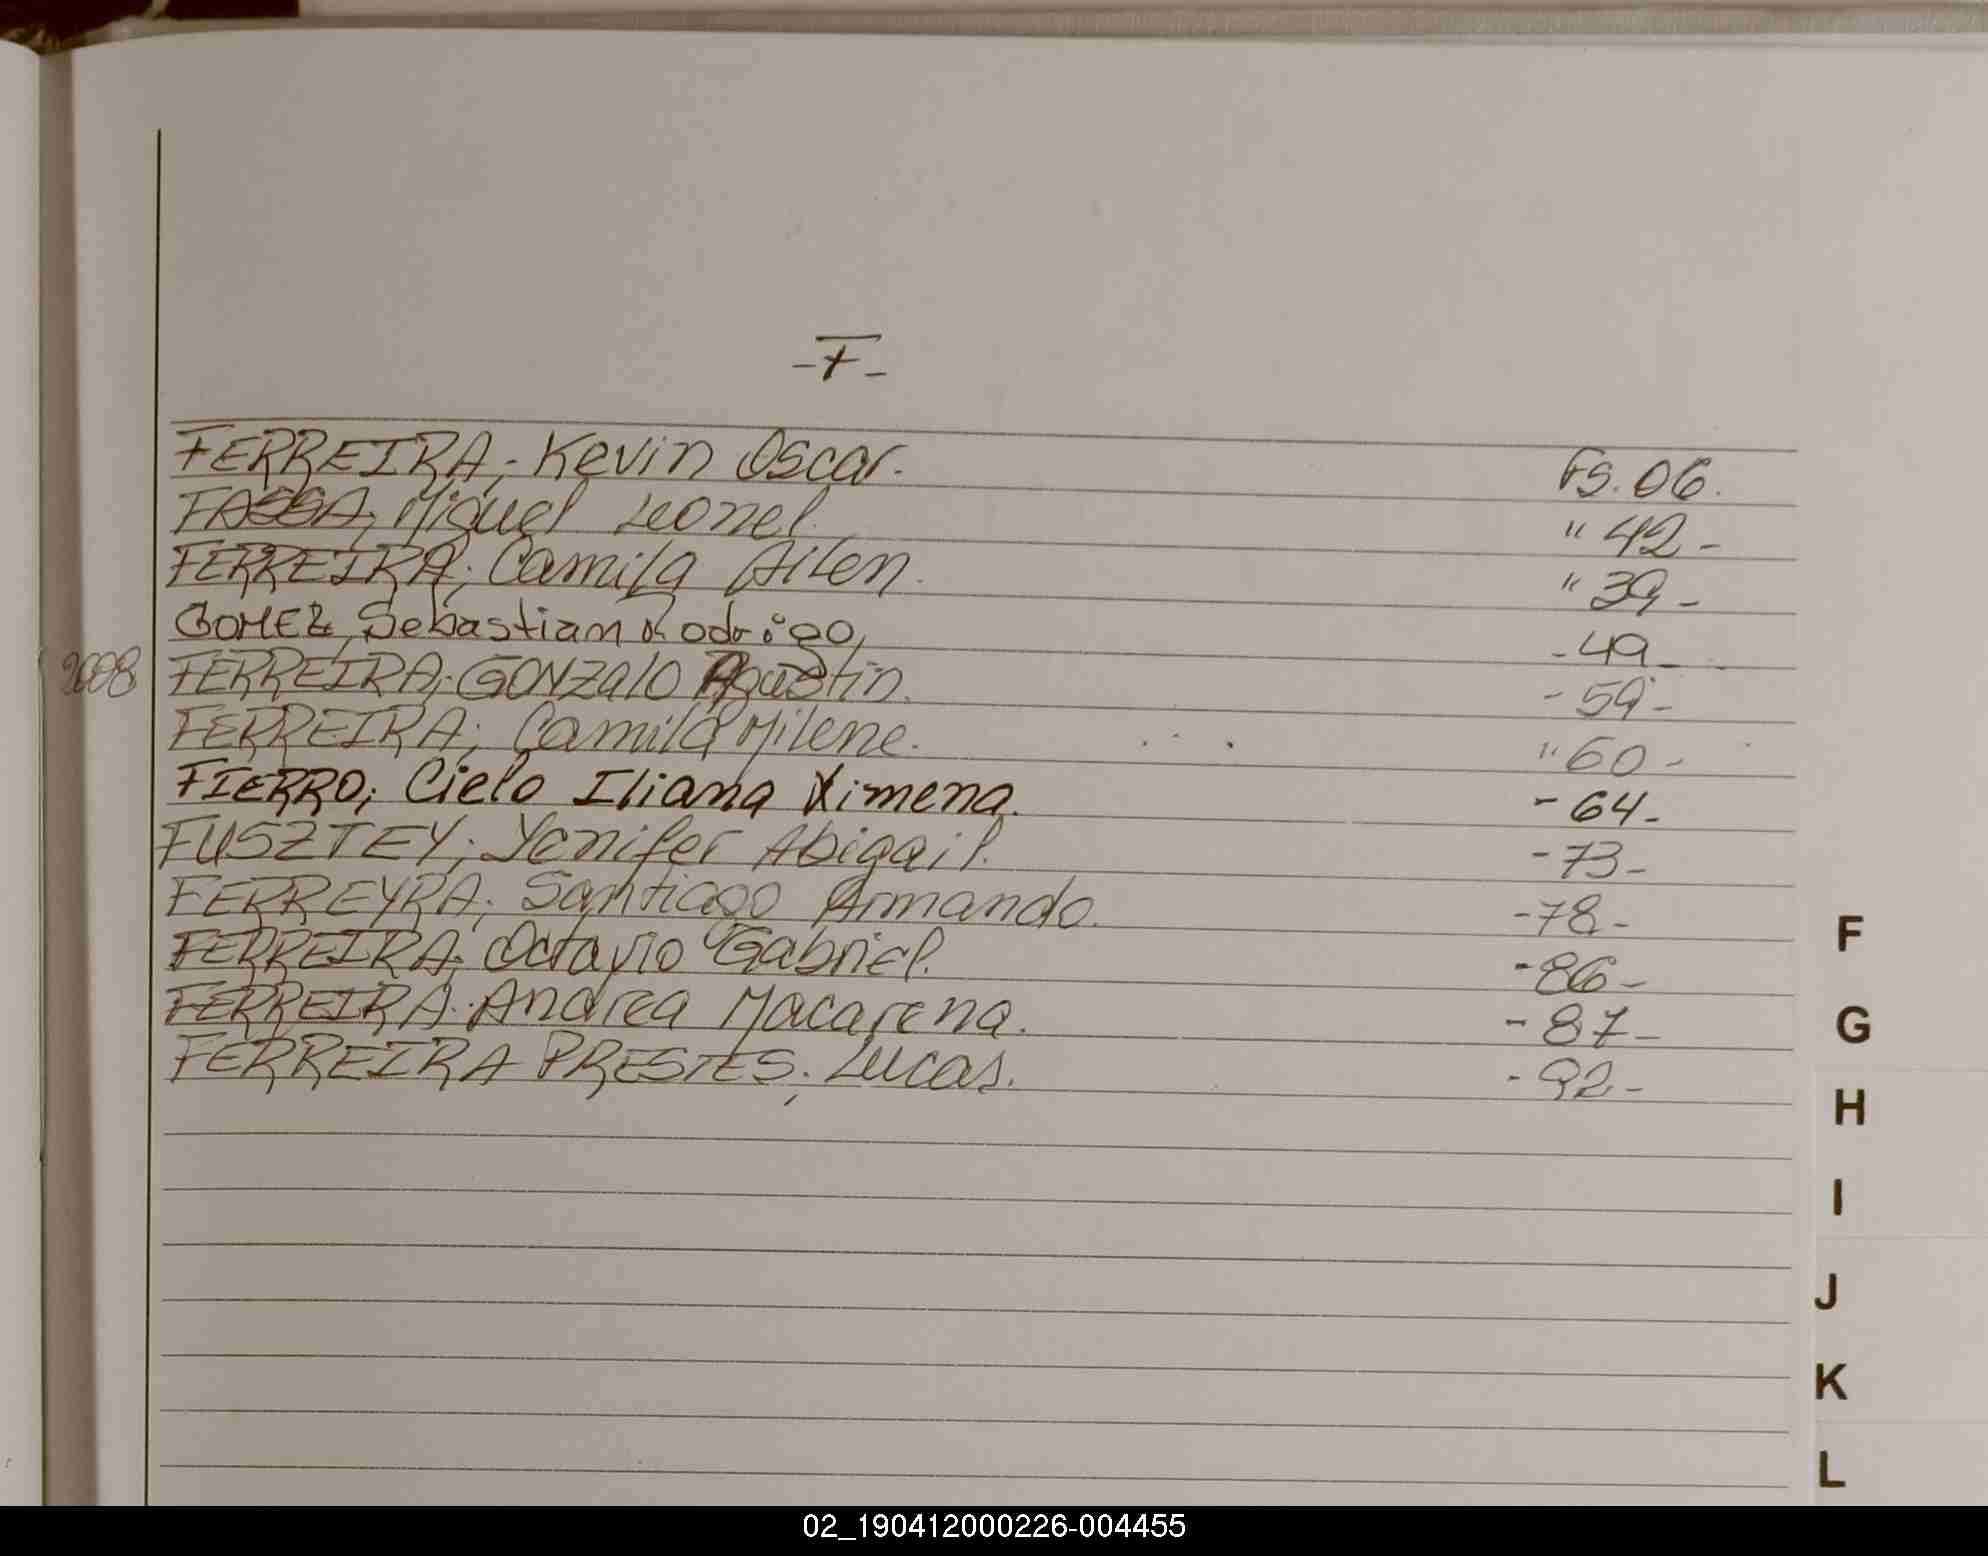 -F-
FERREIRA; Kevin Oscar. Fs. 06.
FASSA; Miguel Leonel. " 42-
FERREIRA; Camila Ailen. " 39-
GOMEZ, Sebastian Rodrigo, -49-
2008 FERREIRA; GONZALO Agustin. -59-
FERREIRA; Camila Milene. " 60-
FIERRO; Cielo Iliana Ximena. -64-
FUSZTEY; Yenifer Abigail. -73-
FERREYRA; Santiago Armando. -78-
F
FERREIRA; Octavio Gabriel. -86-
FERREIRA; Andrea Macarena. -87-
G
FERREIRA PRESTES; Lucas. -92-
H
I
J
K
L
02_190412000226-004455